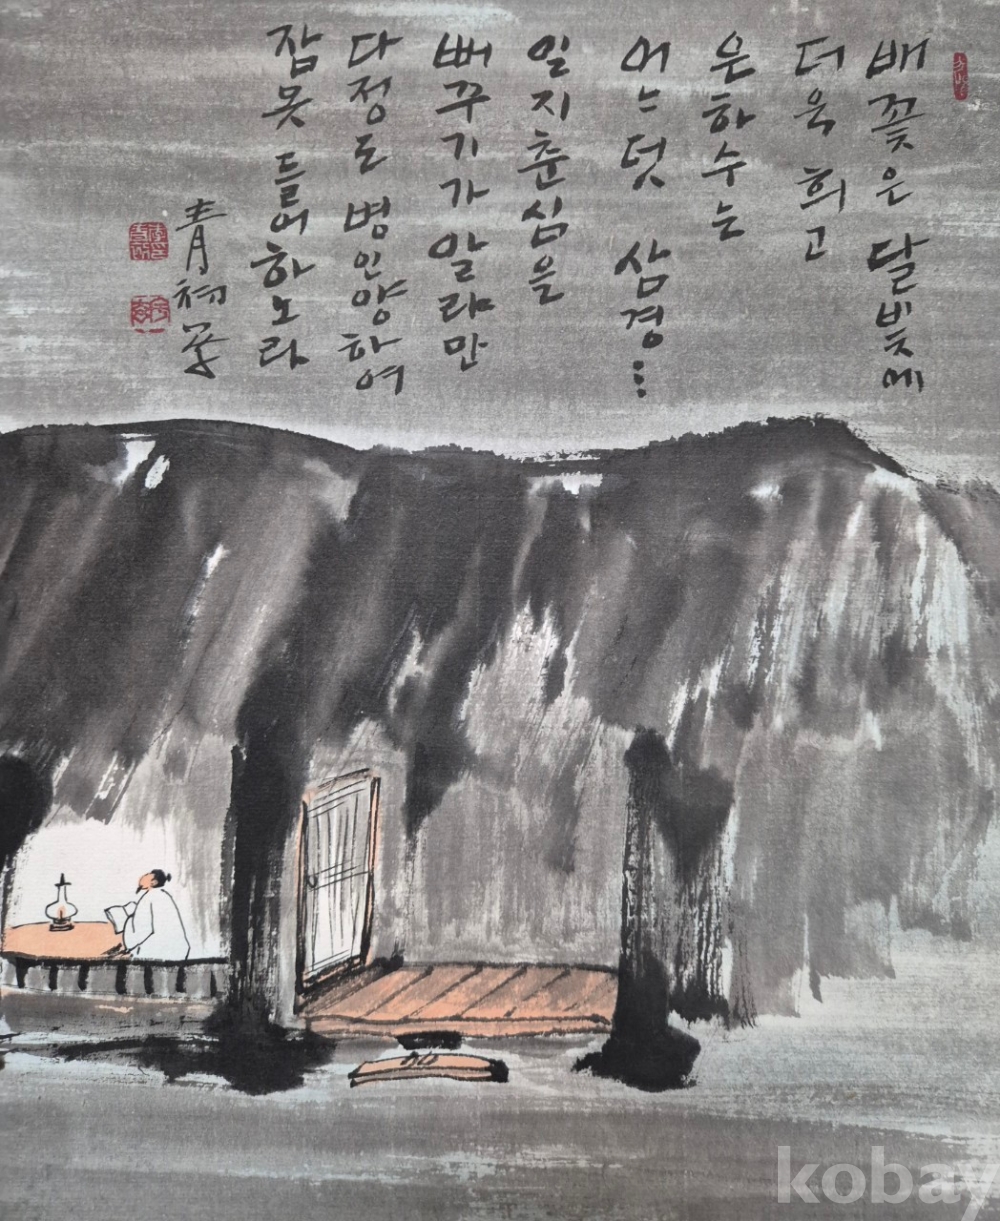 배꽃은 달빛에
더욱 희고
은하수는
어느덧 삼경...
일지춘심을
뻐꾸기가 알랴만
다정도 병인양하여
잠 못 들어 하노라
kobay